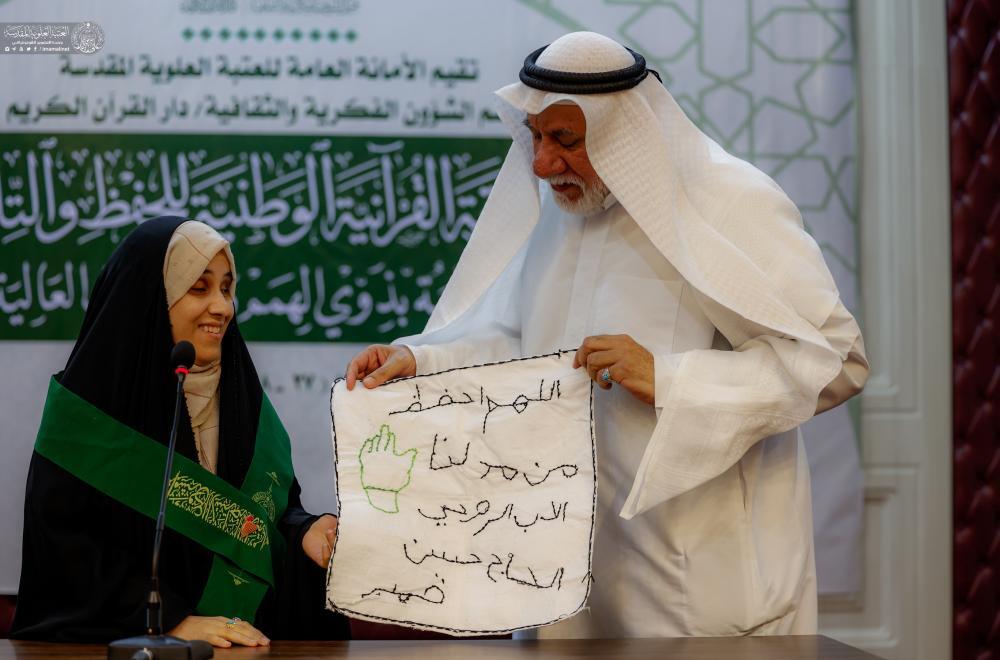 العتبة العلوية المقدسة
imamalinet
تقيم الأمانة العامة للعتبة العلوية المقدسة
م الشؤون الفكرية والثقافية / دار القرآن الكريم
ة القرآنية الوطنية للحفظ والتلا
ة بذوي الهمم العالية
اللهم احفظ
من مد لنا
الأب الروحي
الحاج حسين